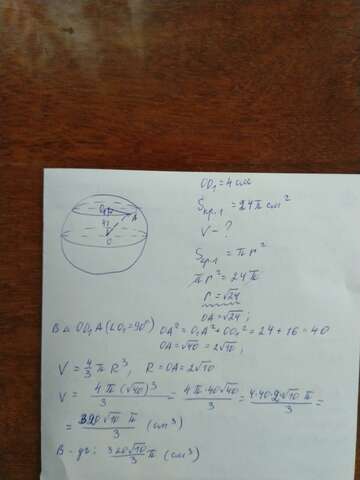 OO₁ = 4 см
Sкр.л = 24π см²
V - ?
Sкр.л = πr²
πr² = 24π
r = √24
OA = √24;
O₁
A
4
O
В △ OO₁A (∠O₁ = 90°) OA² = O₁A² + OO₁² = 24 + 16 = 40
OA = √40 = 2√10;
V = 4/3 π R³, R = OA = 2√10
V = 4π(√40)³/3 = 4π·40√40/3 = 4·40·2√10 π/3 =
= 320√10 π/3 (см³)
В-дь: 320√10/3 π (см³)